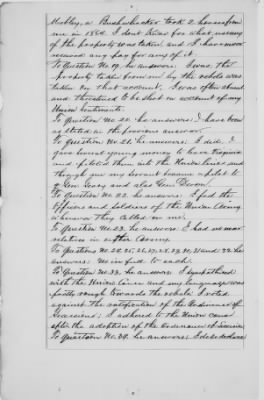 Mobley, a Bushwhacker took 2 horses from
me in 1864. I dont know for what
of the property was taken and I have never
received any pay for any of it
To Question No 19. he answers: I was the
property taken from me by the rebels was
taken on that account. I was often abused
and threatened to be shot on account of my
Union Sentiments.
To Question No 20. he answers: I have been
as stated in the previous answer.
To Question No 21. he answers: I did. I
gave several young money to leave Virginia
and piloted them into the Union Lines and
through me my servant became a pilot to
Gen Geary and also Gen Devon.
To Question No 22. he answers: I fed the
Officers and Soldiers of the Union Army
whenever they called on me.
To Question No 23. he answers: I had no near
relatives in either Army.
To Questions No 24, 25, 26, 27, 28, 29, 30, 31 and 32. he
answers: No in full to each.
To Question No 33. he answers: I sympathized
with the Union Cause and my language was
partly rough towards the rebels. I voted
against the ratification of the Ordinance of
Secession; I adhered to the Union Cause
after the adoption of the Ordinance of Secession
To Question No 34. he answers: I do declare